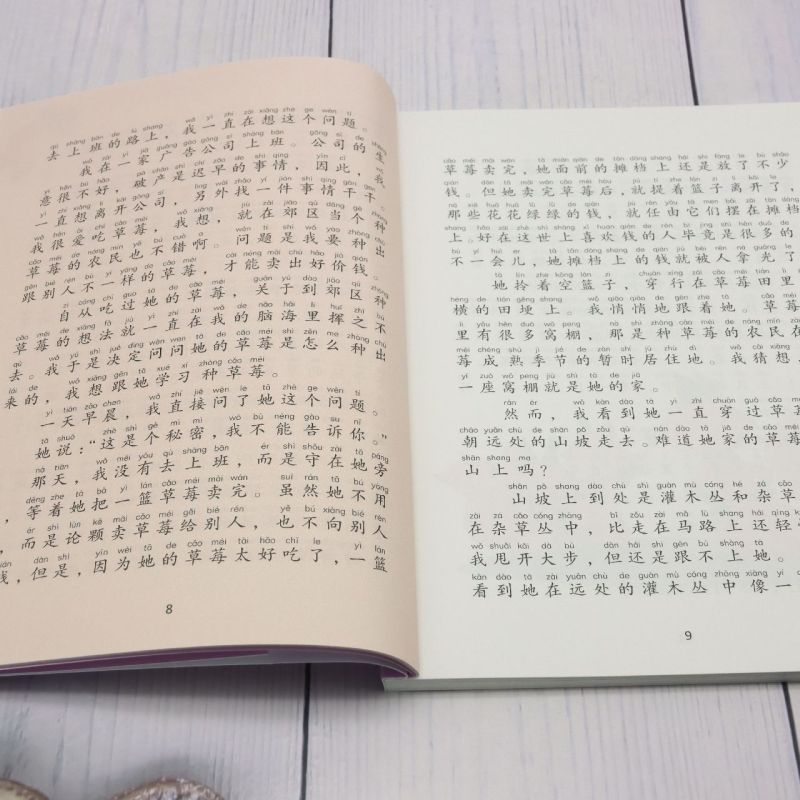 去上班的路上，我一直在想这个问题。
我在一家广告公司上班。公司的生
意很不好，破产是迟早的事情，因此，我
一直想离开公司，另外找一件事情干干。
我很爱吃草莓，我想，就在郊区当个种
草莓的农民也不错啊。问题是我要种出
跟别人不一样的草莓，才能卖出好价钱。
自从吃过她的草莓，关于到郊区种
草莓的想法就一直在我的脑海里挥之不
去。我于是决定问问她的草莓是怎么种出
来的，我想跟她学习种草莓。
一天早晨，我直接问了她这个问题。
她说：“这是个秘密，我不能告诉你。”
那天，我没有去上班，而是守在她旁
，等着她把一篮草莓卖完。虽然她不用
，而是论颗卖草莓给别人，也不向别人
钱，但是，因为她的草莓太好吃了，一篮
8
草莓卖完，她面前的摊档上还是放了不少
钱。但她卖完草莓后，就提着篮子离开了，
那些花花绿绿的钱，就任由它们摆在摊档
上。好在这世上喜欢钱的人毕竟是很多的
不一会儿，她摊档上的钱就被人拿光了
她拎着空篮子，穿行在草莓田里
横的田埂上。我悄悄地跟着她。草莓
里有很多窝棚，那是种草莓的农民在
莓成熟季节的暂时居住地。我猜想，
一座窝棚就是她的家。
然而，我看到她一直穿过草莓
朝远处的山坡走去。难道她家的草莓
山上吗？
山坡上到处是灌木丛和杂草
在杂草丛中，比走在马路上还轻
我甩开大步，但还是跟不上她。
看到她在远处的灌木丛中像一
9